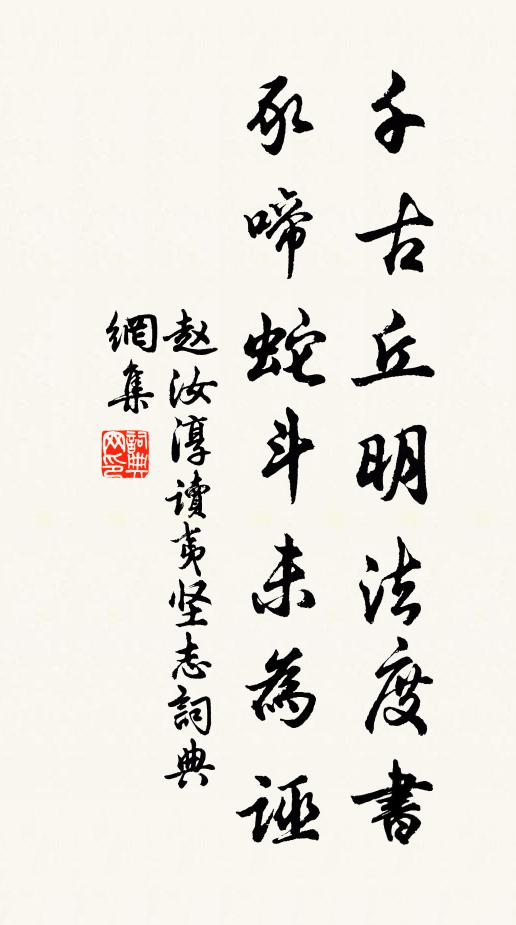 千古丘明法度書
豕啼蛇斗未為誣
赵汝淳讀夷坚志詞典
網集
詞典网印